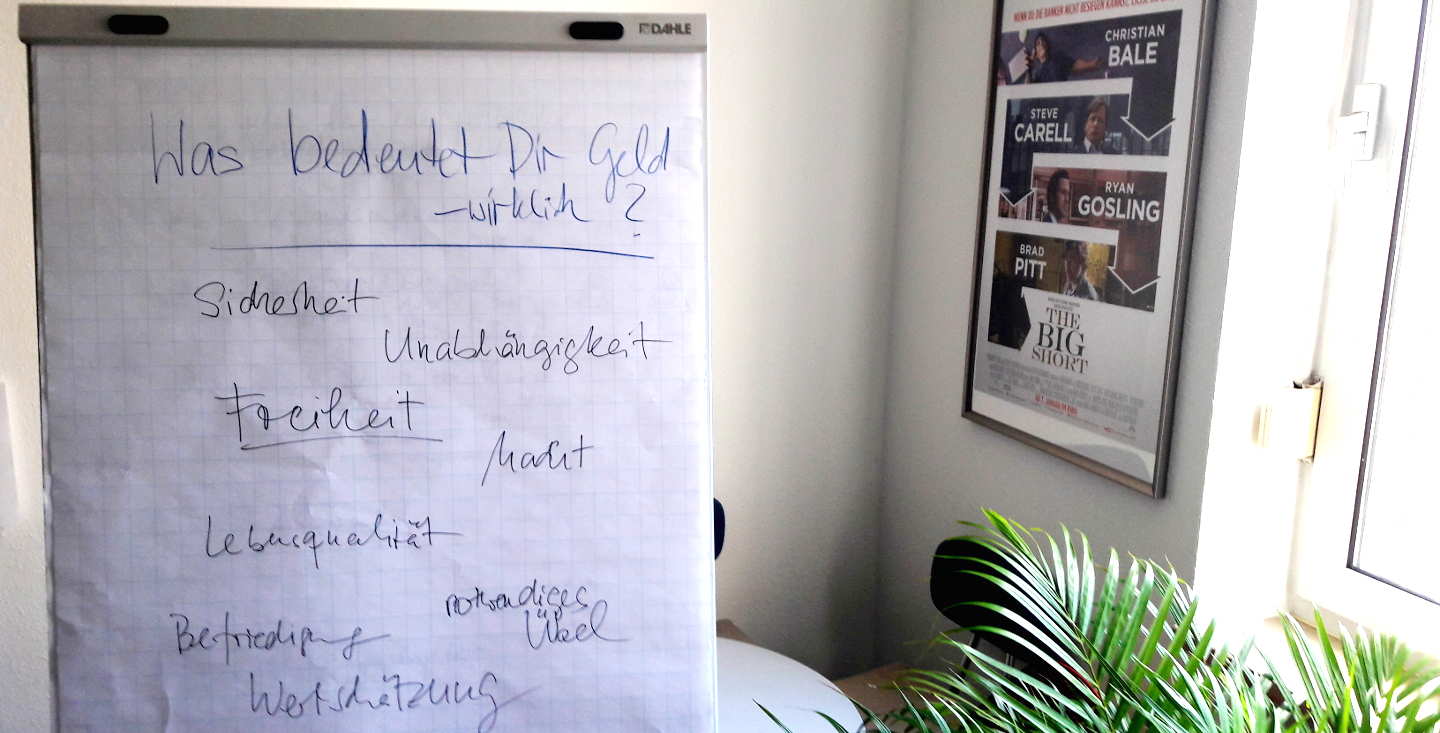 DAHLE
Was bedeutet Dir Geld
-wirklich ?
Sicherheit
Unabhängigkeit
Freiheit
Macht
Lebensqualität
notwendiges
Übel
Befriedigung
Wertschätzung
WENN DU DIE BANKER NICHT BESIEGEN KANNST,
CHRISTIAN
BALE
STEVE
CARELL
RYAN
GOSLING
BRAD
PITT
THE
BIG
SHORT